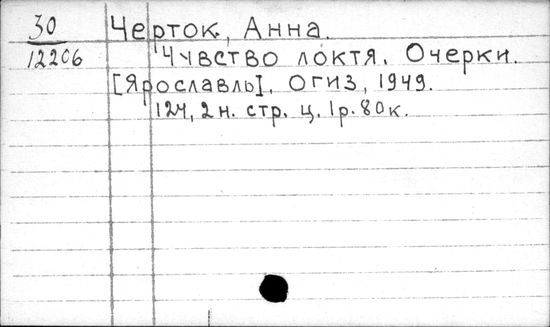 30 Черток, Анна.
12206 Чувство локтя. Очерки.
[Ярославль], ОГИЗ, 1949.
124, 2 н. стр. ц. 1р. 80к.